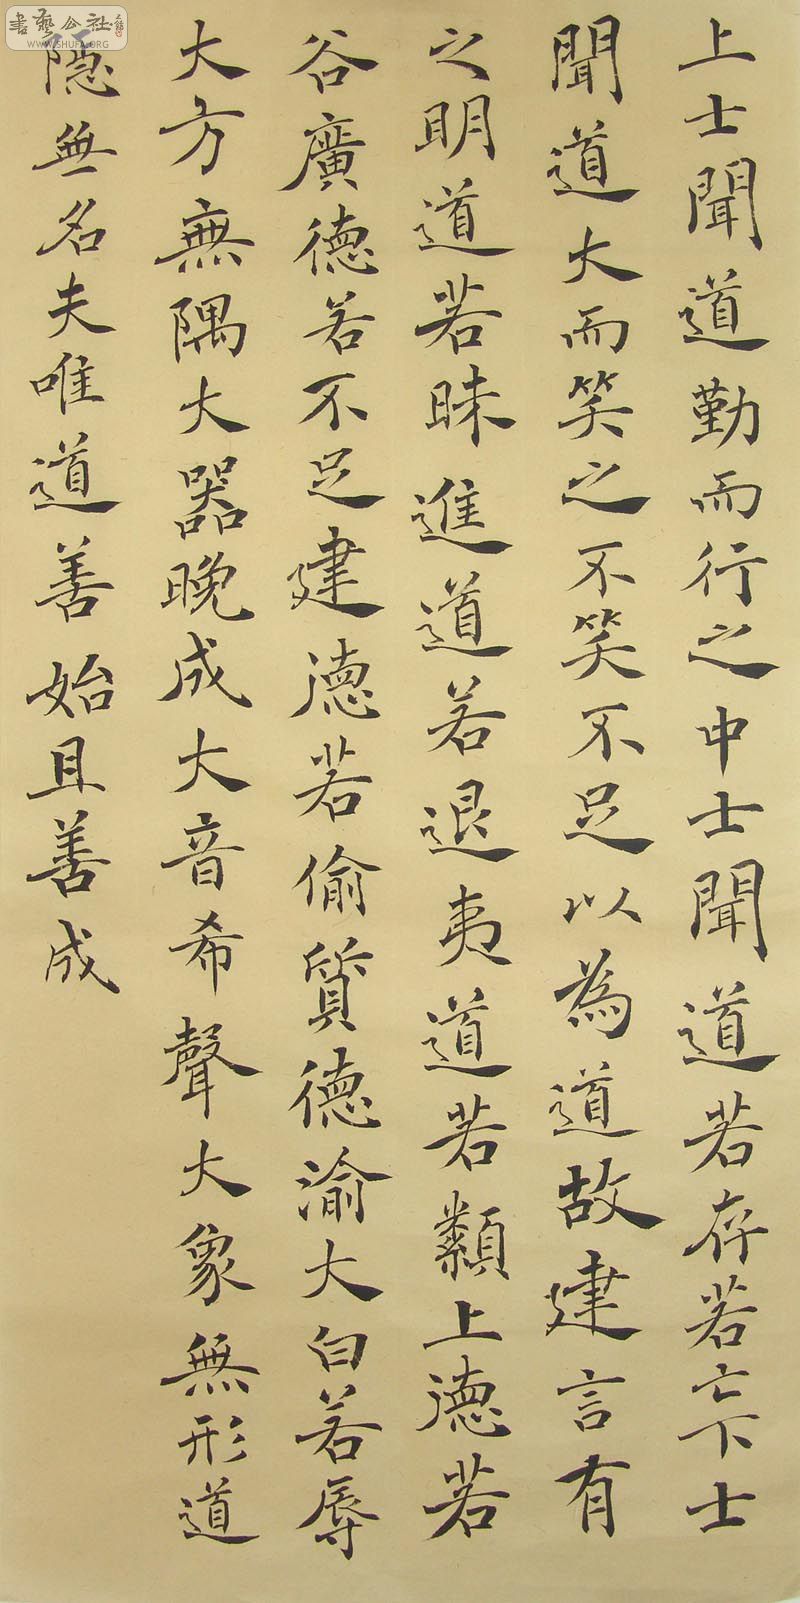 上士聞道勤而行之中士聞道若存若亡下士
聞道大而笑之不笑不足以為道故建言有
之明道若昧進道若退夷道若纇上德若
谷廣德若不足建德若偷質德渝大白若辱
大方無隅大器晚成大音希聲大象無形道
隱無名夫唯道善始且善成
書藝公社
WWW.SHUFA.ORG